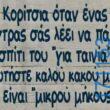 Κορίτσια όταν ένας
ντρας σάς λέει να πά
σπίτι του "για ταινία
ωτήστε καλού κακού μ
είναι "μικρού μήκους